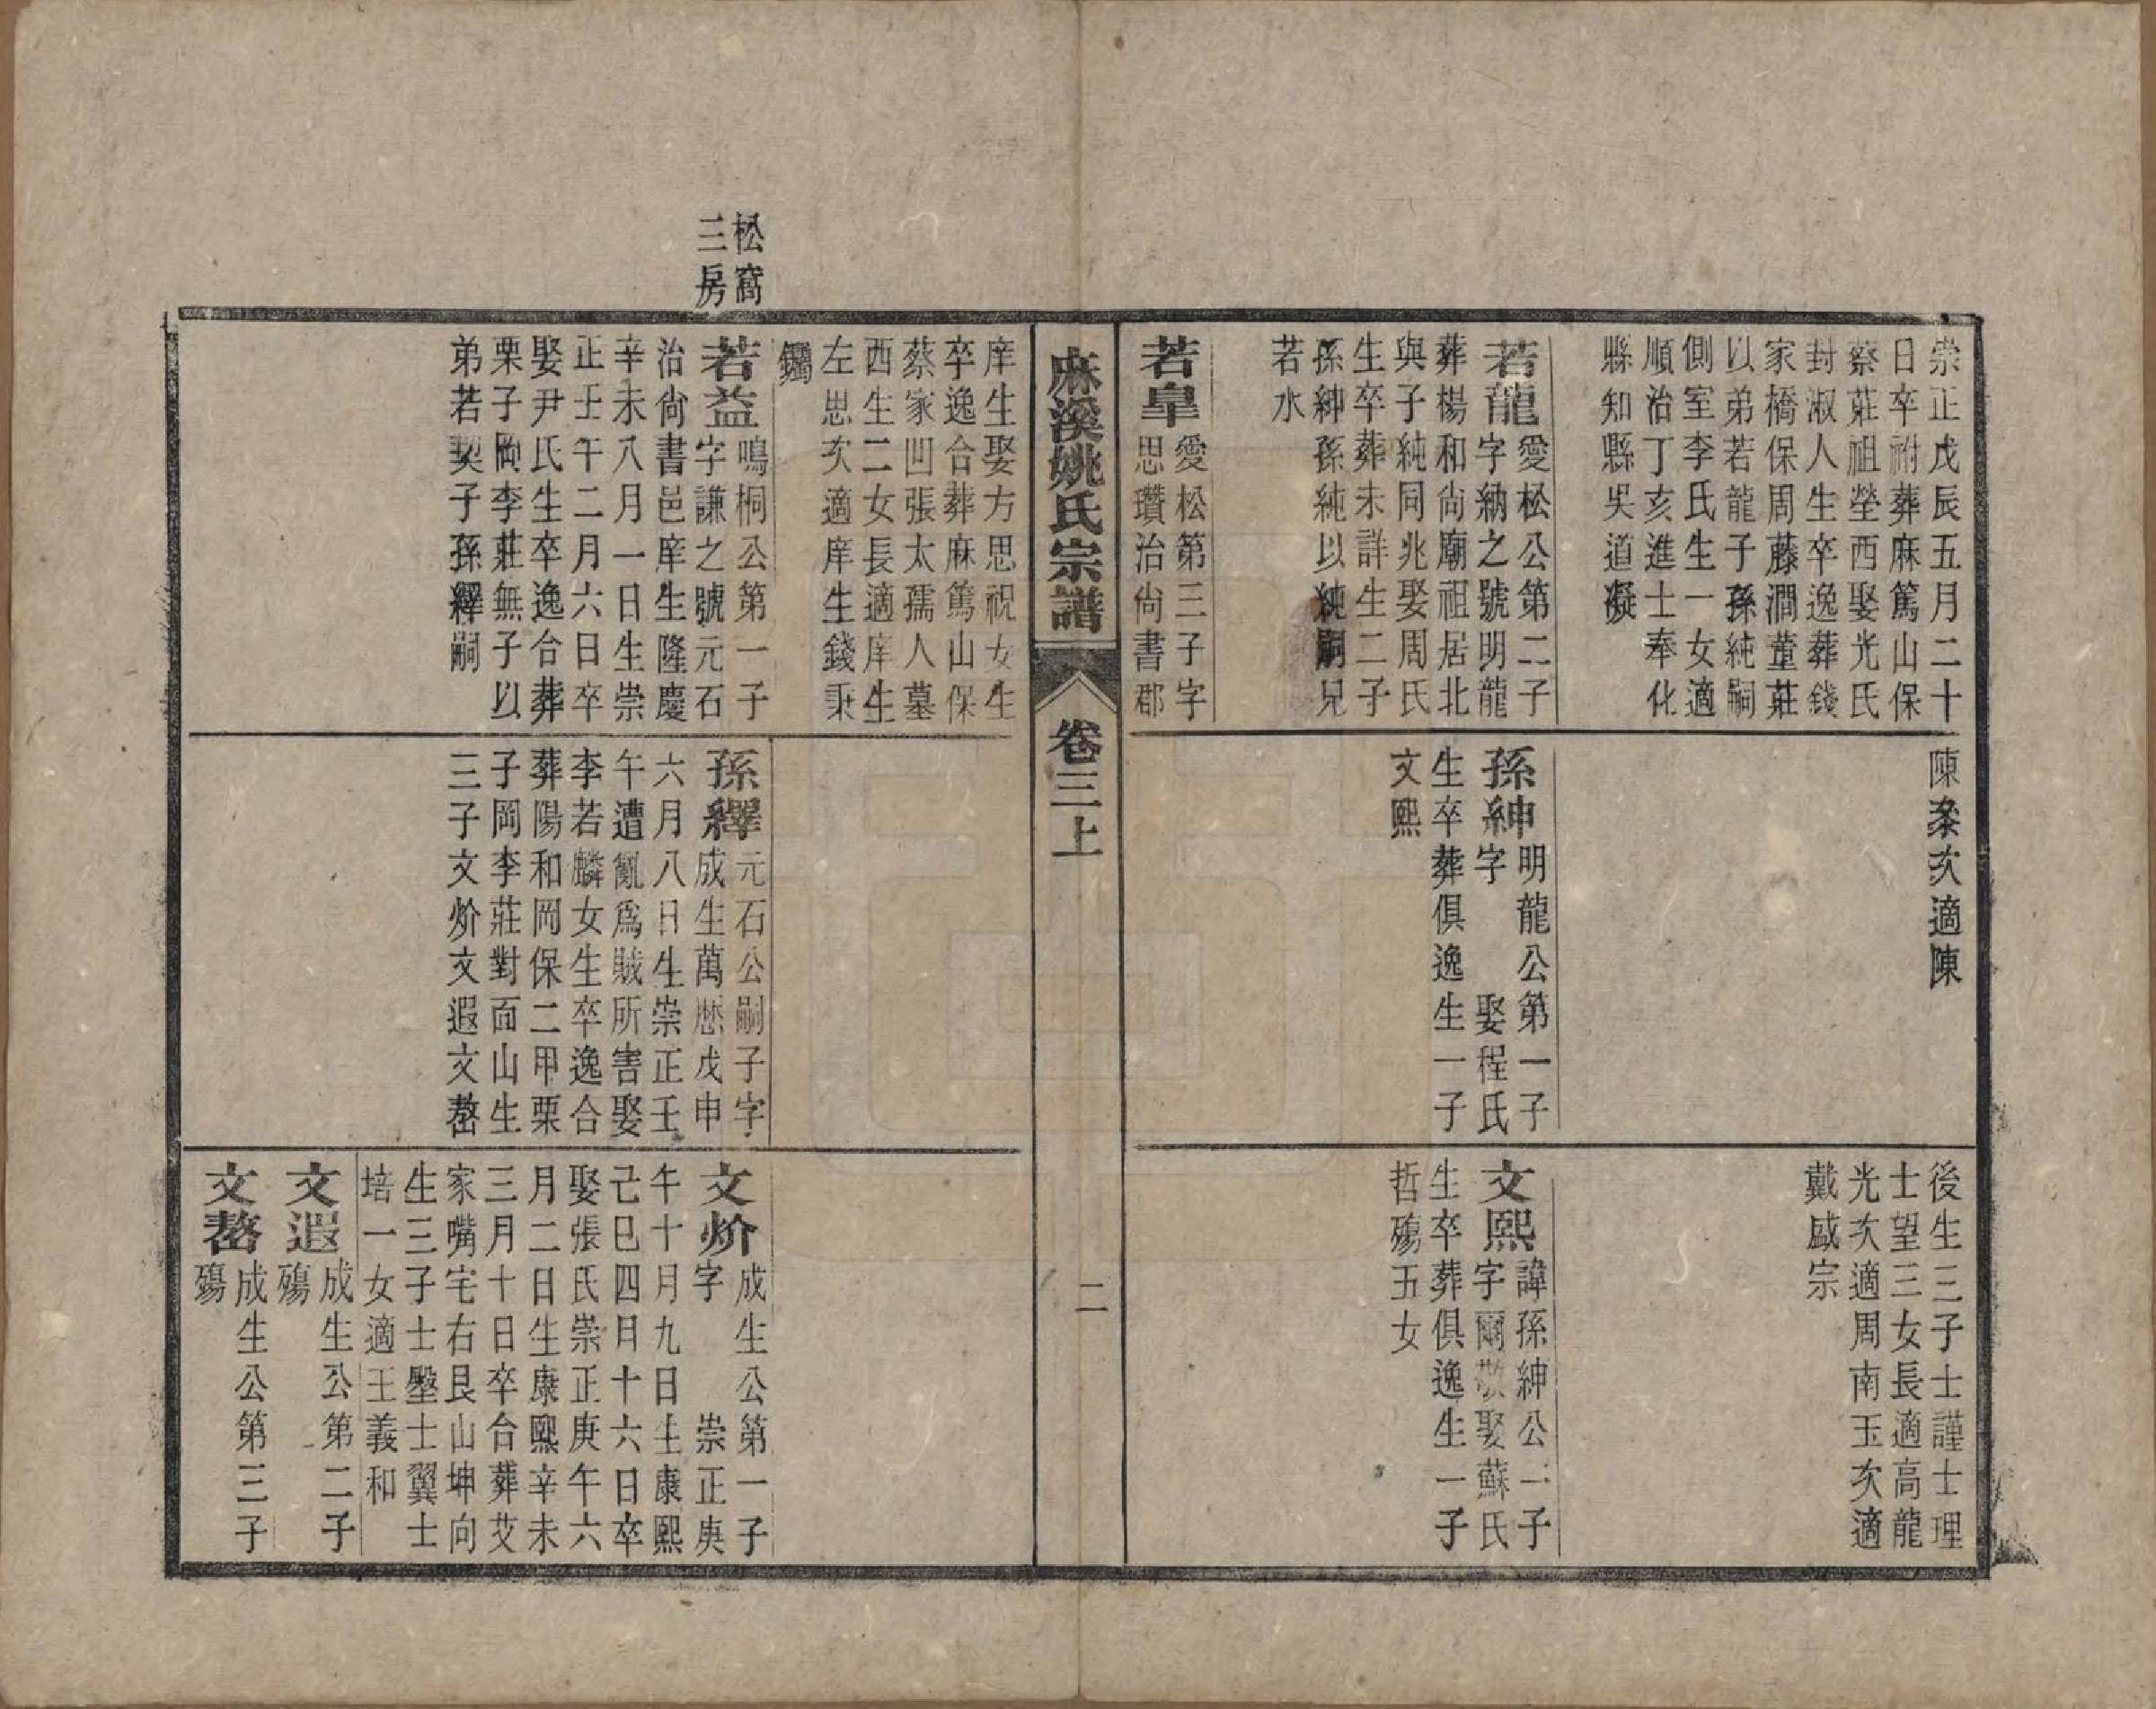 崇正戊辰五月二十
日卒祔葬麻篤山保
蔡莊祖塋西娶光氏
封淑人生卒逸葬錢
家橋保周藤澗董莊
以弟若龍子孫純嗣
側室李氏生一女適
順治丁亥進士奉化
縣知縣吳道凝
若龍
愛松公第二子
字納之號明龍
葬楊和尙廟祖居北
與子純同兆娶周氏
生卒葬未詳生二子
孫紳孫純以純嗣兄
若水
若皐
愛松第三子字
思瓚治尙書郡
陳 次適陳
孫紳
明龍公第一子
字　　娶程氏
生卒葬俱逸生一子
文熙
後生三子士謹士理
士望三女長適高龍
光次適周南玉次適
戴感宗
文熙
諱孫紳公一子
字爾敬娶蘇氏
生卒葬俱逸生一子
哲殤五女
麻溪姚氏宗譜
卷三上
二
庠生娶方思祝女生
卒逸合葬麻篤山保
蔡家凹張太孺人墓
西生二女長適庠生
左思次適庠生錢秉
鐲
松窩
三房
若益
鳴桐公第一子
字謙之號元石
治尙書邑庠生隆慶
辛未八月一日生崇
正壬午二月六日卒
娶尹氏生卒逸合葬
栗子岡李莊無子以
弟若契子孫繹嗣
孫繹
元石公嗣子字
成生萬歷戊申
六月八日生崇正壬
午遭亂爲賊所害娶
李若麟女生卒逸合
葬陽和岡保二甲栗
子岡李莊對面山生
三子文炌文遐文嶅
文炌
成生公第一子
字　　崇正庚
午十月九日生康熙
己巳四月十六日卒
娶張氏崇正庚午六
月二日生康熙辛未
三月十日卒合葬艾
家嘴宅右艮山坤向
生三子士壂士翼士
培一女適王義和
文遐
成生公第二子
殤
文嶅
成生公第三子
殤